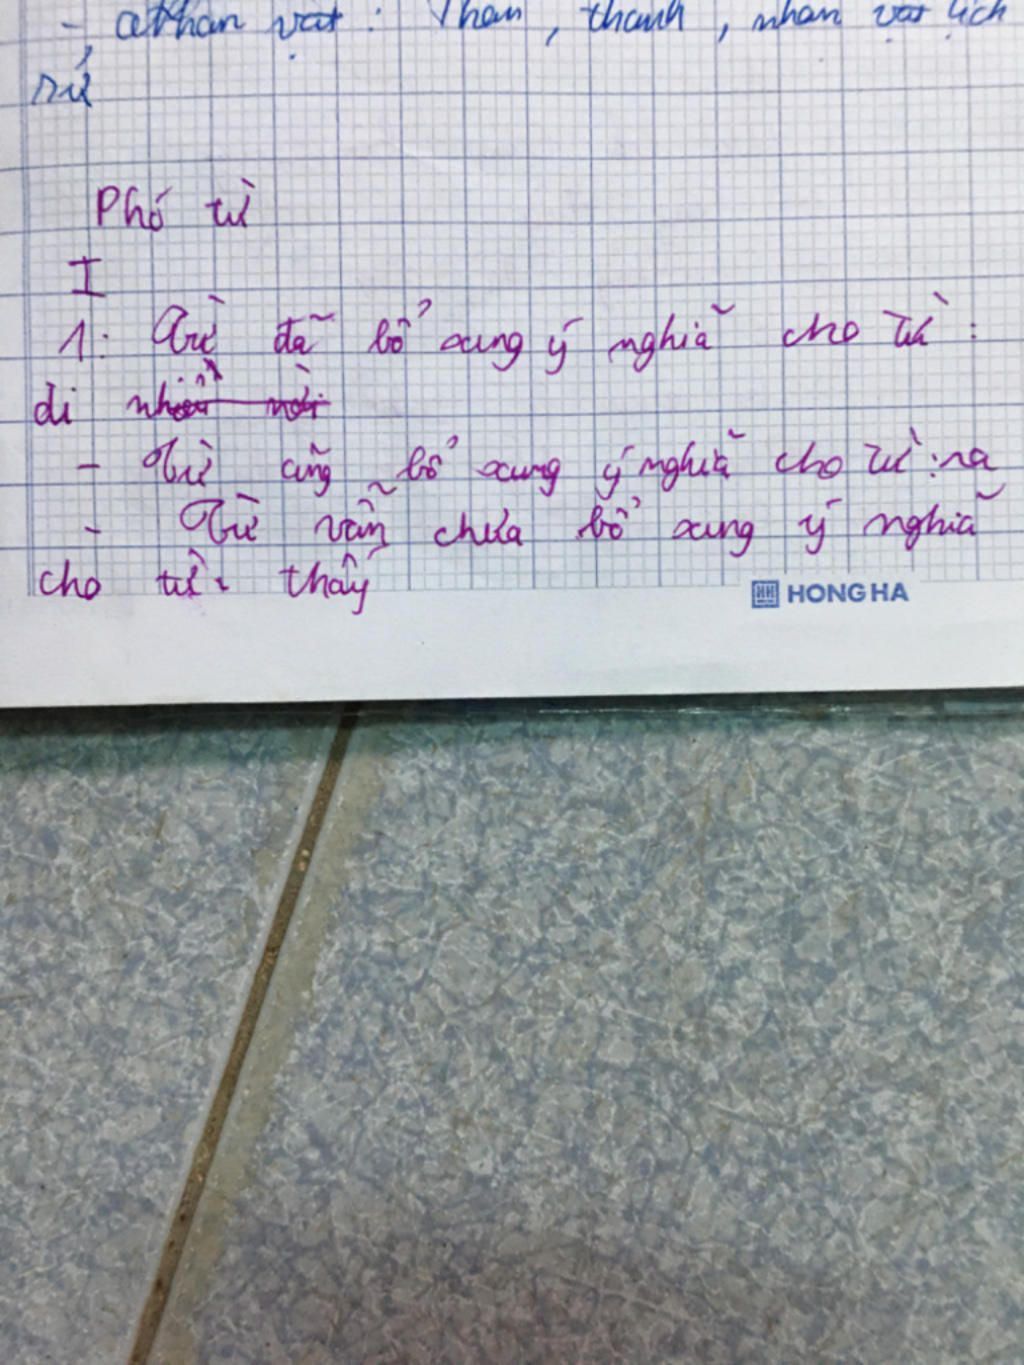 -, nhân vật : Thần, thánh, nhân vật lịch
sử
Phó từ
I
1: Từ đã bổ xung ý nghiã cho từ :
đi nhiều nơi
- Từ cũng bổ xung ý nghiã cho từ : ra
- Từ vẫn chưa bổ xung ý nghiã
cho từ : thấy
HONG HA